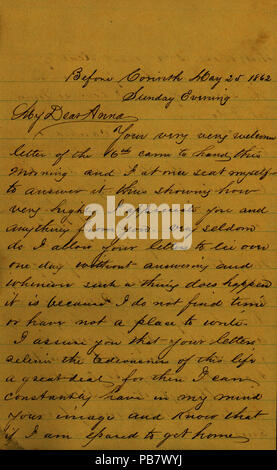 Before Corinth May 25 1862
Sunday Evening
My Dear Anna
Your very very welcome
letter of the 16th came to hand, this
morning and I at once seat myself
to answer it thus showing how
very high I appreciate you and
anything from you. very seldom
do I allow your letters to lie over
one day without answering and
whenever such a thing does happen
it is because I do not find time
or have not a place to write.
I assure you that your letters
releive the tediousness of this life
a great deal for then I can
constantly have in my mind
your image and know that
if I am spared to get home
alamy
Image ID: PB7WYJ
www.alamy.com